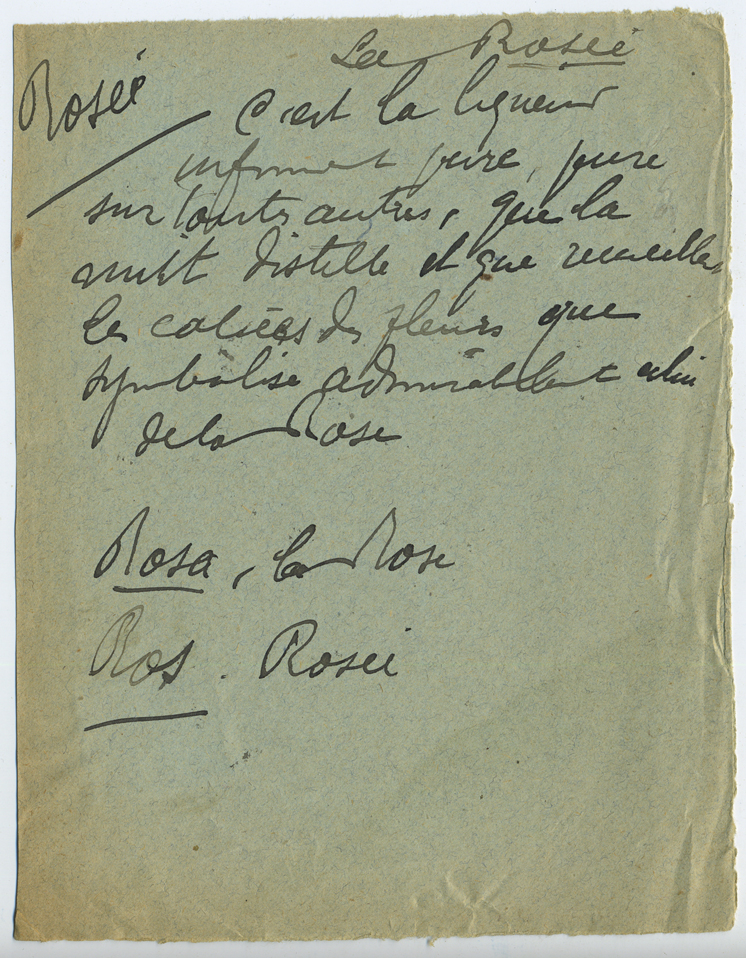 La Rosée
Rosée
C'est la liqueur
infiniment pure, pure
sur toutes autres, que la
nuit distille et que recueille
les calices des fleurs que
symbolise admirablement celui
de la Rose
Rosa, la Rose
Ros. Rosée